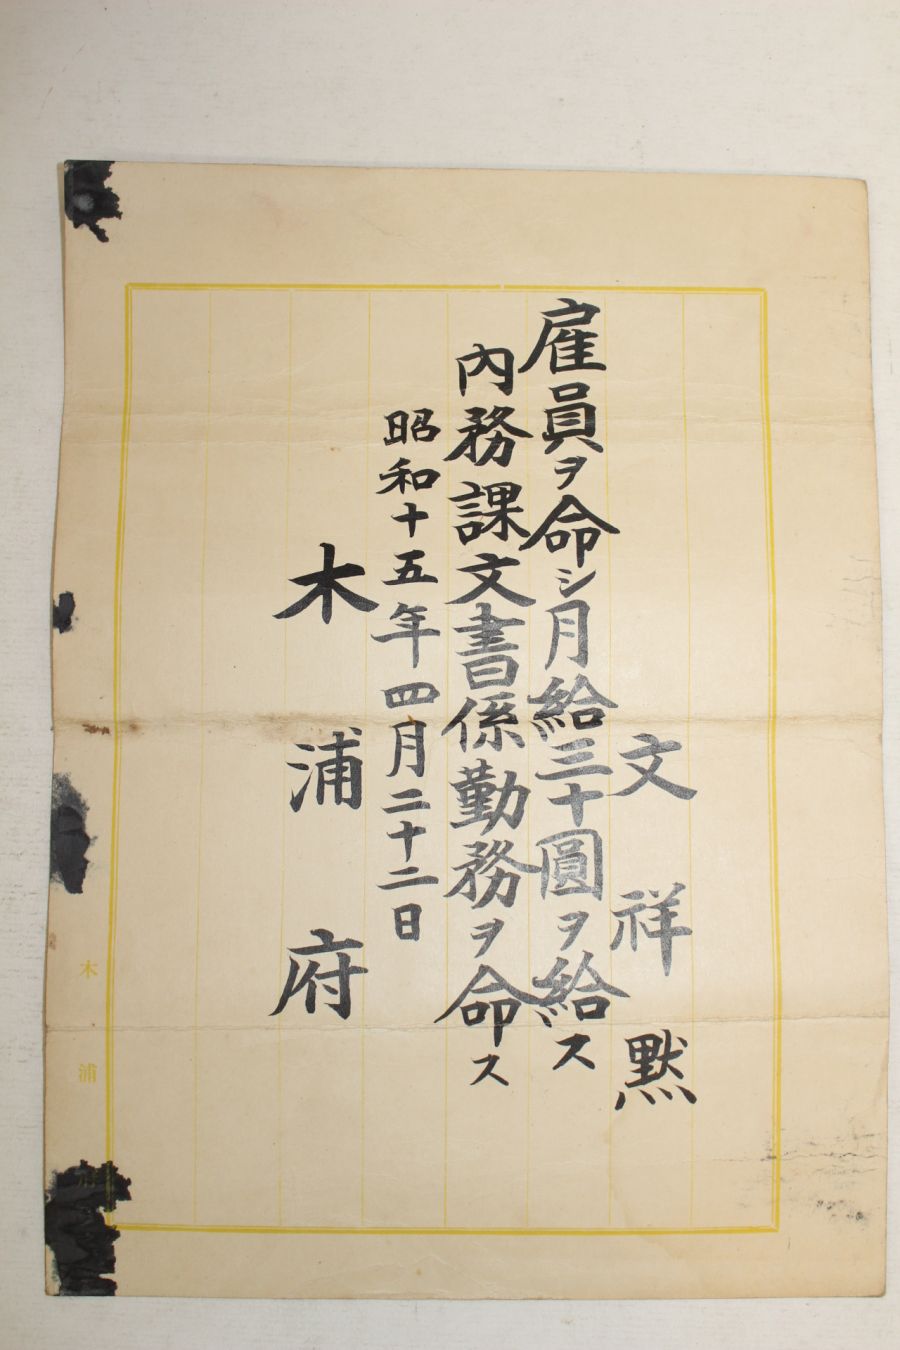 文祥默
雇員ヲ命シ月給三十圓ヲ給ス
內務課文書係勤務ヲ命ス
昭和十五年四月二十二日
木浦府
木浦